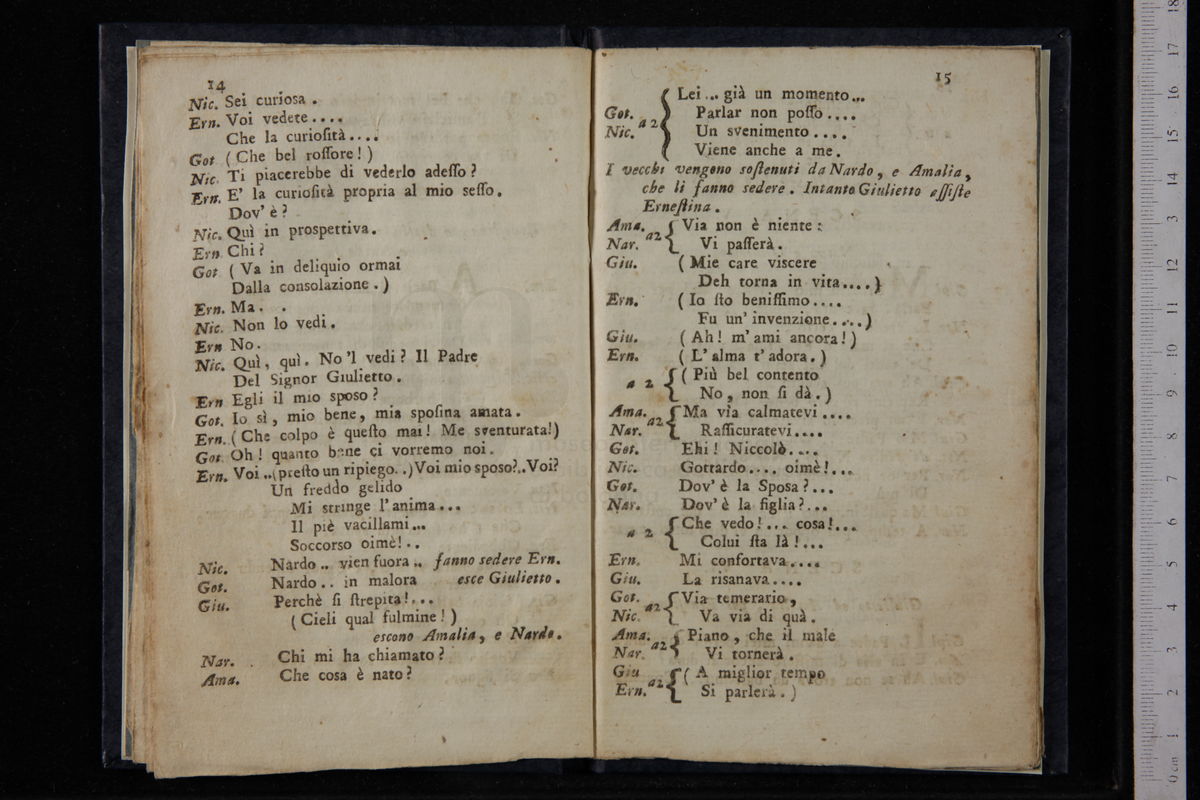 14
Nic. Sei curiosa .
Ern. Voi vedete ....
Che la curioſità ....
Got ( Che bel roſſore ! )
Nic. Ti piacerebbe di vederlo adeſſo ?
Ern. E' la curioſità propria al mio seſſo .
Dov' è ?
Nic. Quì in prospettiva .
Ern. Chi ?
Got ( Va in deliquio ormai
Dalla consolazione . )
Ern. Ma . .
Nic. Non lo vedi .
Ern No .
Nic. Quì , quì . No 'l vedi ? Il Padre
Del Signor Giulietto .
Ern Egli il mio sposo ?
Got. Io sì , mio bene , mia spoſina amata .
Ern. ( Che colpo è queſto mai ! Me sventurata! )
Got. Oh ! quanto bene ci vorremo noi .
Ern. Voi ..(preſto un ripiego. .) Voi mio sposo?..Voi?
Un freddo gelido
Mi stringe l' anima ...
Il piè vacillami ...
Soccorso oimè! ..
Nic. Nardo .. vien fuora .. fanno sedere Ern.
Got. Nardo .. in malora esce Giulietto .
Giu. Perchè ſi ſtrepita! ...
( Cieli qual fulmine ! )
escono Amalia , e Nardo .
Nar. Chi mi ha chiamato ?
Ama. Che cosa è nato ?
15
Lei ... già un momento ...
Got. Parlar non poſſo ....
Nic. a 2 Un svenimento ....
Viene anche a me .
I vecchi vengono soſtenuti da Nardo , e Amalia ,
che li fanno sedere . Intanto Giulietto aſſiſte
Erneſtina .
Ama. Via non è niente :
Nar. a2 Vi paſſerà .
Giu. ( Mie care viscere
Deh torna in vita .... )
Ern. ( Io ſto beniſſimo ....
Fu un' invenzione .... )
Giu. ( Ah ! m' ami ancora ! )
Ern. ( L' alma t' adora . )
a 2 ( Più bel contento
No , non ſi dà . )
Ama. Ma via calmatevi ....
Nar. a2 Raſſicuratevi ....
Got. Ehi ! Niccolò ....
Nic. Gottardo .... oimè ! ...
Got. Dov' è la Sposa ? ...
Nar. Dov' è la figlia ? ...
a 2 Che vedo ! ... cosa! ...
Colui ſta là ! ...
Ern. Mi confortava ....
Giu. La risanava ....
Got. Via temerario ,
Nic. a2 Va via di quà .
Ama. Piano , che il male
Nar. a2 Vi tornerà .
Giu ( A miglior tempo
Ern. a2 Si parlerà . )